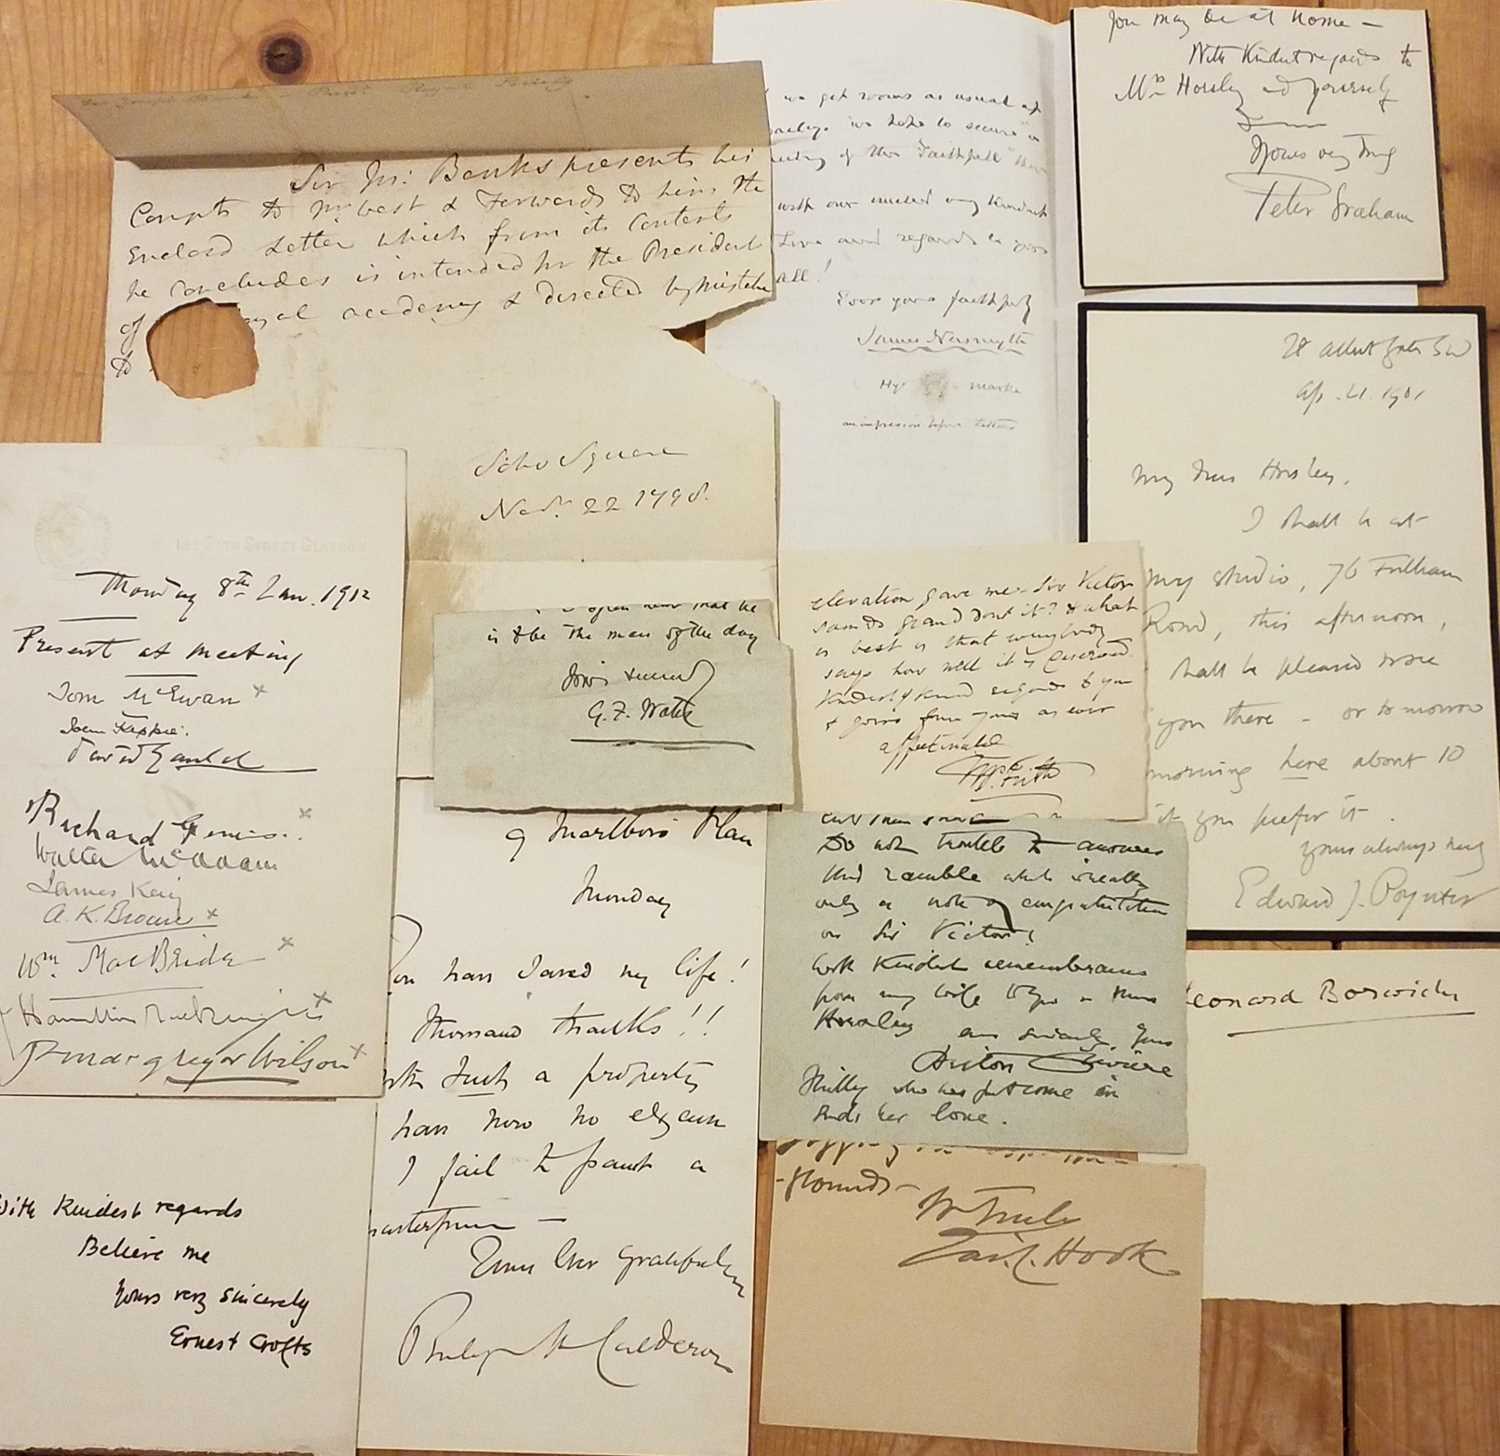 Sir Jos: Banks presents his
Compts to Mr West & Forwards to him the
Enclosd Letter which from its Contents
he concludes is intended for the President
of academy & directed by mistake
to
Soho Square
Novr. 22 1798.
we get rooms as usual at
we hope to secure a
meeting of the "Faithfull"
with our united very kindest
Love and regards to you
all!
Ever yours faithfully
James Nasmyth
marke
an impression before letters
you may be at home —
With Kindest regards to
Mrs Horsley and yourself
Yours very truly
Peter Graham
28 Albert Gate SW
Ap. 21. 1901
My dear Horsley,
I shall be at
my studio, 76 Fulham
Road, this afternoon,
shall be pleased to see
you there – or tomorrow
morning here about 10
if you prefer it.
yours always truly
Edward J. Poynter
Monday 8th Jan. 1912
Present at Meeting
Tom McEwan x
John Keppie.
David Gauld
Richard
Walter McAdam
James Kay
A. K. Brown x
Wm. MacBride x
Hamilton x
P. Macgregor Wilson x
that he
is to be the man of the day
G. F. Watts
elevation gave me. Sir Victor
sounds grand dont it? & what
is best is that everybody
says how well it is deserved.
Kindest regards to you
& yours from yours as ever
affectionately
W. P. Frith
Do not trouble to answer
this ramble which is really
only a note of congratulation
on Sir Victor!
With Kindest remembrances
from my wife to you & Mrs
Horsley am sincerely yours
Briton Riviere
Philly who has just come in
sends her love.
9 Marlboro Place
Monday
You have saved my life!
Thousand thanks!!
With Such a property
have now no excuse
I fail to paint a
masterpiece —
Yours Ever Gratefully
Philip H Calderon
Leonard Borwick
-grounds-
Yrs Truly
Jas. C. Hook
With Kindest regards
Believe me
Yours very sincerely
Ernest Crofts